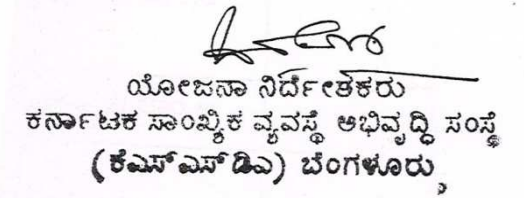 ಯೋಜನಾ ನಿರ್ದೇಶಕರು
ಕರ್ನಾಟಕ ಸಾಂಖ್ಯಿಕ ವ್ಯವಸ್ಥೆ ಅಭಿವೃದ್ಧಿ ಸಂಸ್ಥೆ
(ಕೆಎಸ್ಎಸ್ಡಿಎ) ಬೆಂಗಳೂರು